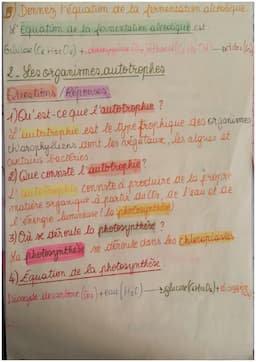 5) Donnez l'équation de la fermentation alcoolique.
L'Équation de la fermentation alcoolique est
Glucose (C6H12O6) +
2_ Les organismes autotrophes
Questions / Réponses
1) Qu'est-ce que l'autotrophie ?
L'autotrophie est le type trophique des organismes
chlorophylliens dont les végétaux, les algues et
certains bactéries.
2) Que consiste l'autotrophie ?
L'autotrophie consiste à produire de la propre
matière organique à partir de CO2, de l'eau et de
l'énergie lumineuse : la photosynthèse
3) Où se déroule la photosynthèse ?
La photosynthèse se déroule dans les chloroplastes.
4) Equation de la photosynthèse
Dioxyde de carbone (CO2) + eau (H2O) → glucose (C6H12O6) + dioxygène